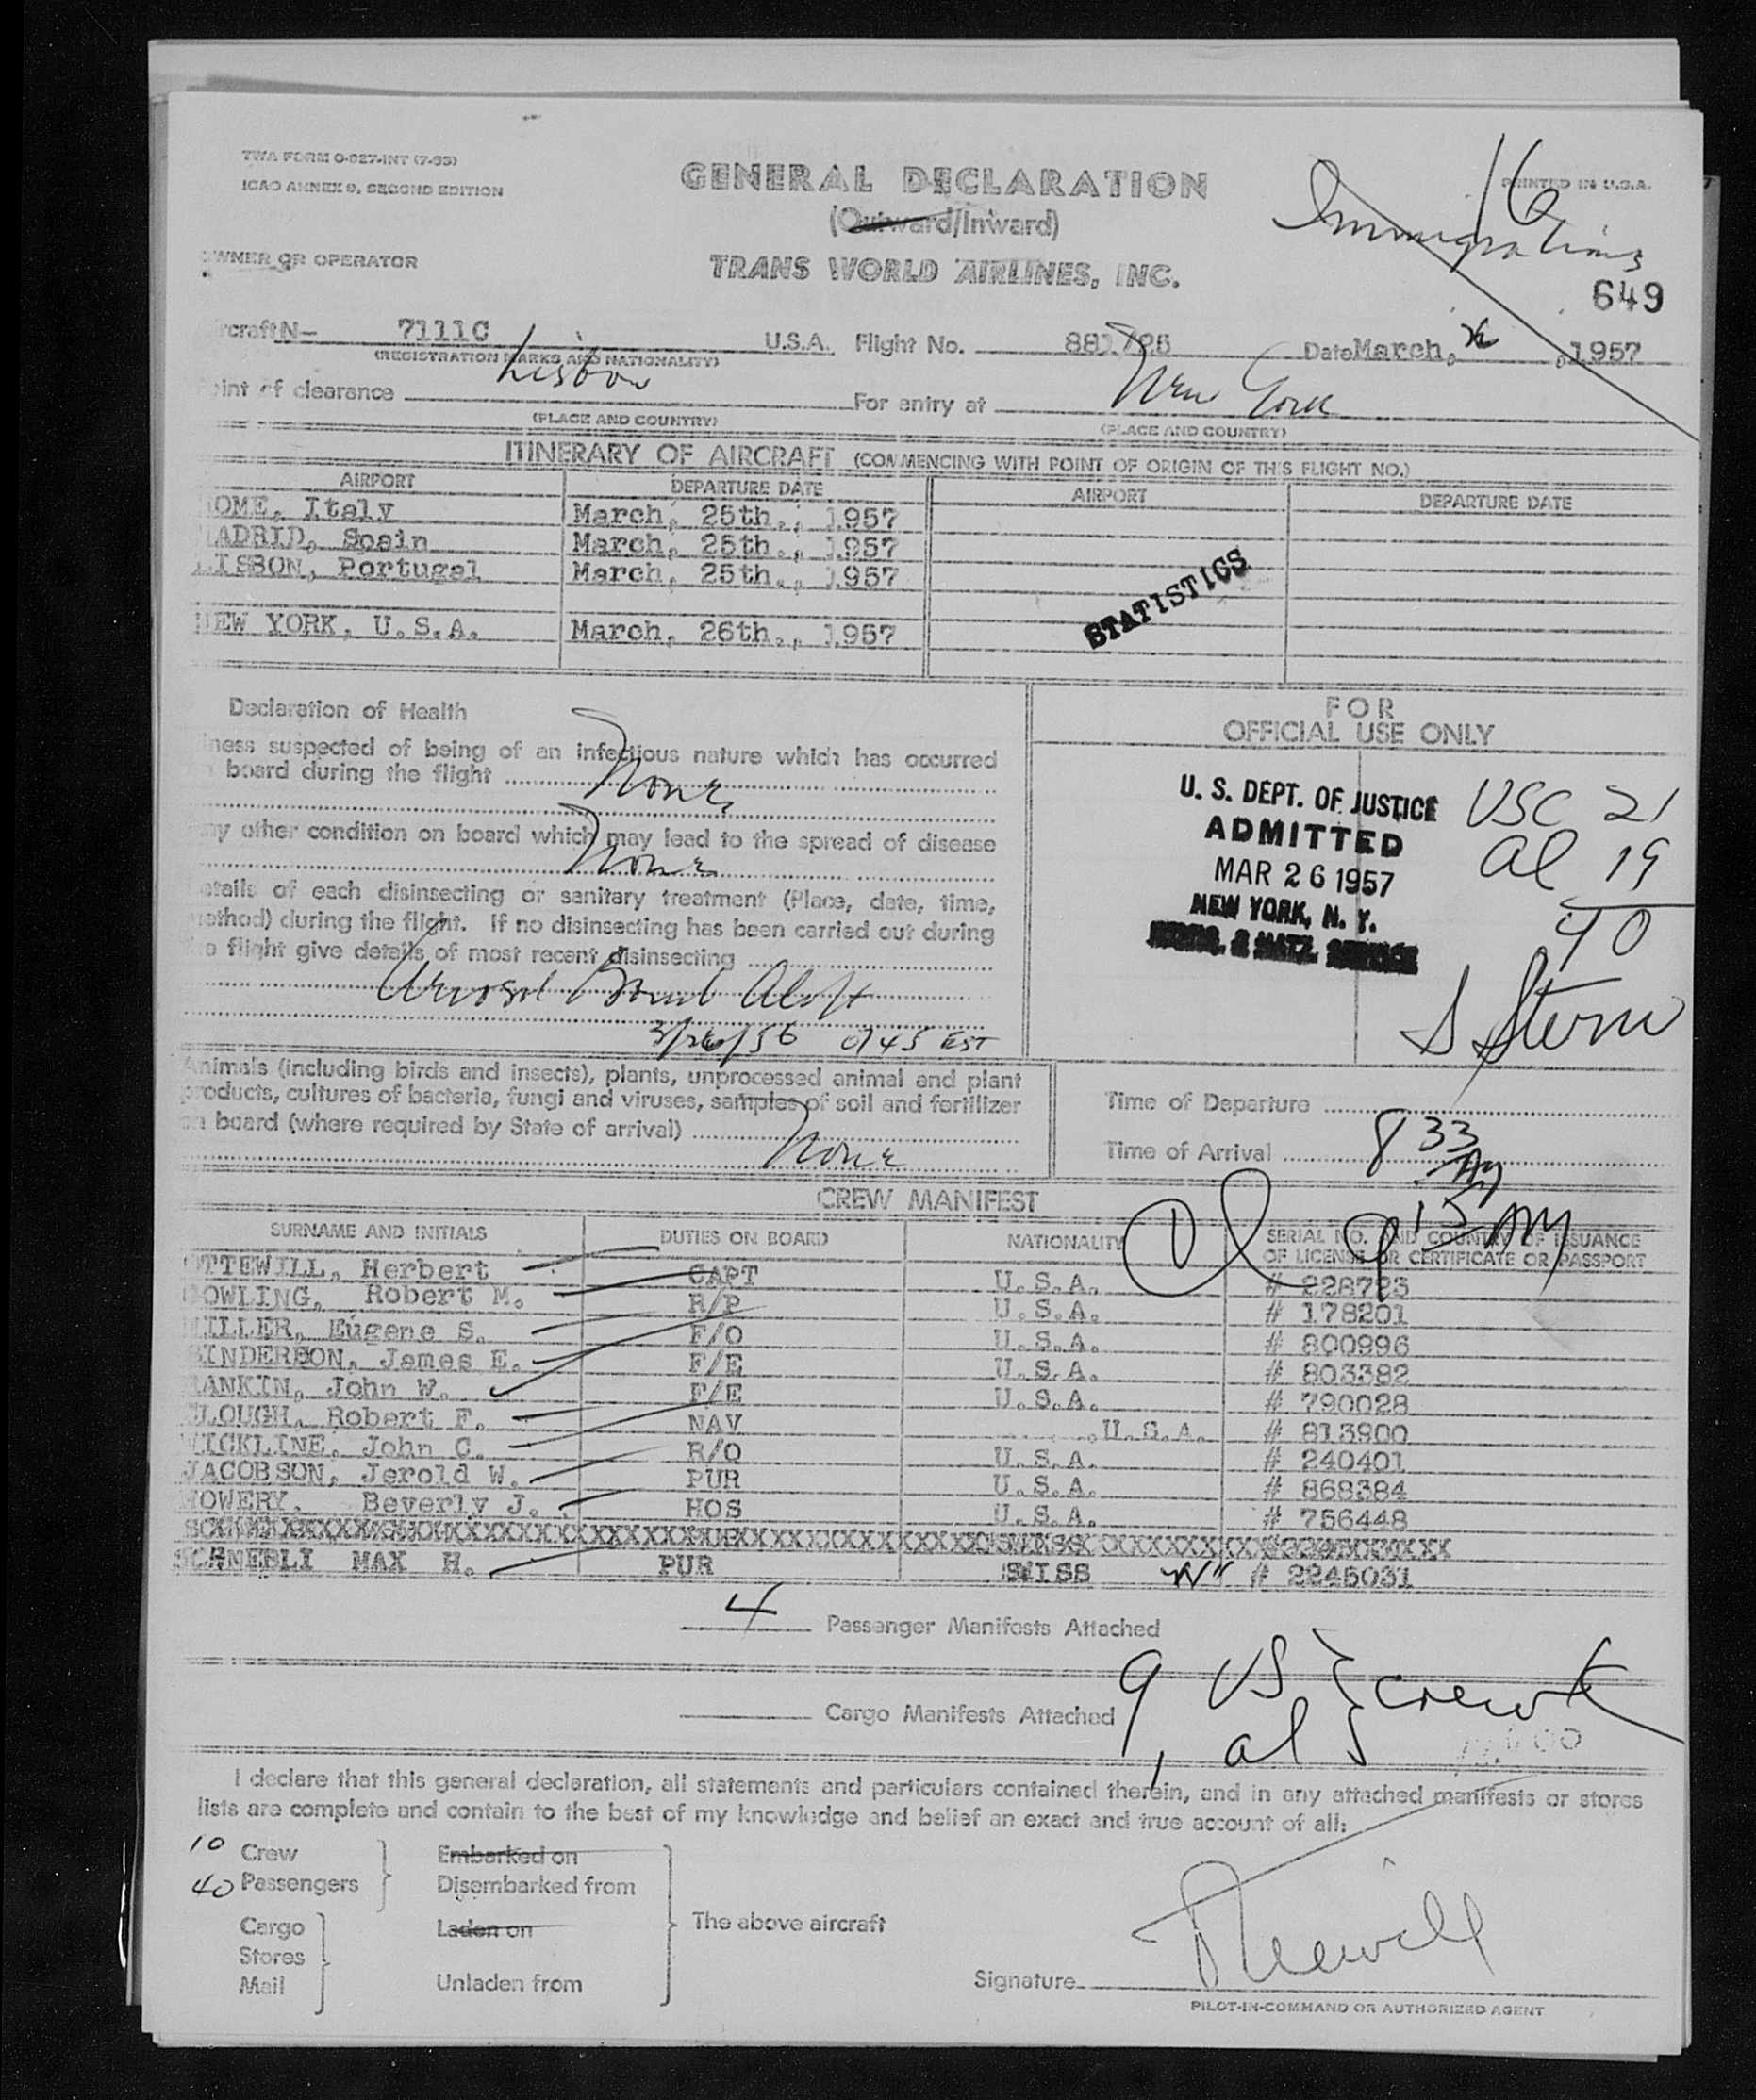 TWA FORM O-927-INT (7-53)
ICAO ANNEX 9, SECOND EDITION
GENERAL DECLARATION
(Outward/Inward)
PRINTED IN U.S.A.
16
Immigrations
OWNER OR OPERATOR
TRANS WORLD AIRLINES, INC.
649
rcraft N- 7111C U.S.A. Flight No. Date March, , 1957
(REGISTRATION MARKS AND NATIONALITY)
oint of clearance Lisbon For entry at New York
(PLACE AND COUNTRY) (PLACE AND COUNTRY)
ITINERARY OF AIRCRAFT (COMMENCING WITH POINT OF ORIGIN OF THIS FLIGHT NO.)
AIRPORT DEPARTURE DATE AIRPORT DEPARTURE DATE
ROME, Italy March, 25th., 1957
MADRID, Spain March, 25th., 1957
LISBON, Portugal March, 25th., 1957
NEW YORK, U.S.A. March, 26th., 1957
STATISTICS
Declaration of Health
lness suspected of being of an infectious nature which has occurred
n board during the flight None
ny other condition on board which may lead to the spread of disease
None
etails of each disinsecting or sanitary treatment (Place, date, time,
method) during the flight. If no disinsecting has been carried out during
he flight give details of most recent disinsecting
Aerosol Bomb Aloft
3/26/56 0745 EST
FOR
OFFICIAL USE ONLY
U. S. DEPT. OF JUSTICE
ADMITTED
MAR 26 1957
NEW YORK, N. Y.
USC 21
al 19
40
S Stern
Animals (including birds and insects), plants, unprocessed animal and plant
products, cultures of bacteria, fungi and viruses, samples of soil and fertilizer
on board (where required by State of arrival)
None
Time of Departure
Time of Arrival 8 33 AM
CREW MANIFEST
9 15 AM
SURNAME AND INITIALS DUTIES ON BOARD NATIONALITY SERIAL NO. AND COUNTRY OF ISSUANCE
OF LICENSE OR CERTIFICATE OR PASSPORT
OTTEWILL, Herbert CAPT U.S.A. # 228723
OWLING, Robert M. R/P U.S.A. # 178201
MILLER, Eugene S. F/O U.S.A. # 800996
INDERSON, James E. F/E U.S.A. # 803382
RANKIN, John W. F/E U.S.A. # 790028
CLOUGH, Robert F. NAV U.S.A. # 813900
WICKLINE, John C. R/O U.S.A. # 240401
JACOBSON, Jerold W. PUR U.S.A. # 868384
MOWERY, Beverly J. HOS U.S.A. # 756448
SCHNEBLI MAX H. PUR SWISS # 2245031
4 Passenger Manifests Attached
Cargo Manifests Attached
9 US } crew
1 al
I declare that this general declaration, all statements and particulars contained therein, and in any attached manifests or stores
lists are complete and contain to the best of my knowledge and belief an exact and true account of all:
10 Crew Embarked on
40 Passengers Disembarked from
Cargo Laden on The above aircraft
Stores
Mail Unladen from
Signature Ottewill
PILOT-IN-COMMAND OR AUTHORIZED AGENT